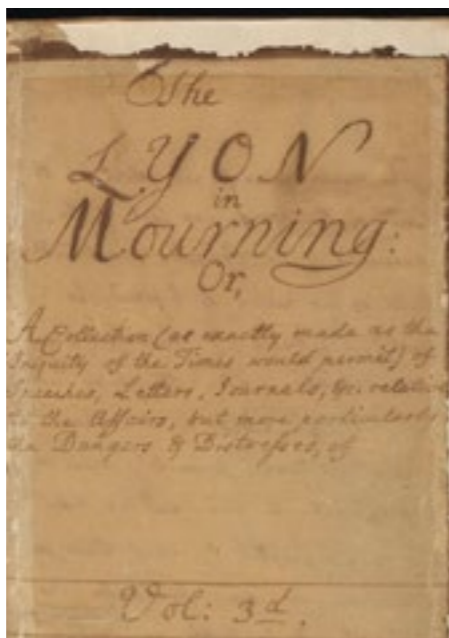 The
LYON
in
Mourning:
Or,
A Collection (as exactly made as the
Iniquity of the Times would permit) of
Speeches, Letters, Journals, &c. relative
to the Affairs, but more particularly
the Dangers & Distresses, of
Vol: 3d.